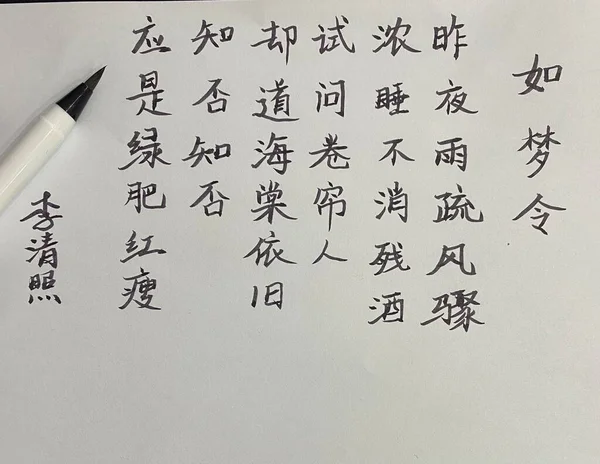 如梦令
昨夜雨疏风骤
浓睡不消残酒
试问卷帘人
却道海棠依旧
知否知否
应是绿肥红瘦
李清照